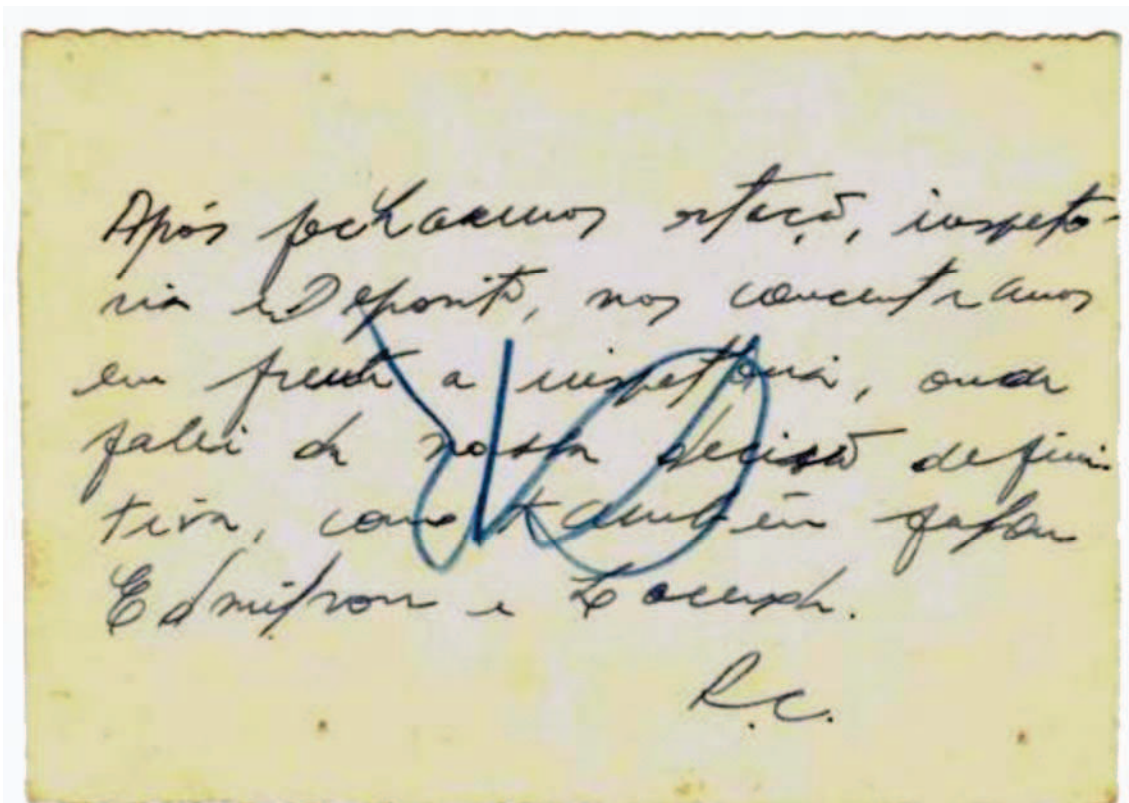 Após fecharmos estação, inspeto-
ria e Deposito, nos concentramos
em frente a inspetoria, onde
falei da nossa decisão defini-
tiva, como também falou
Edmilson e
R.C.